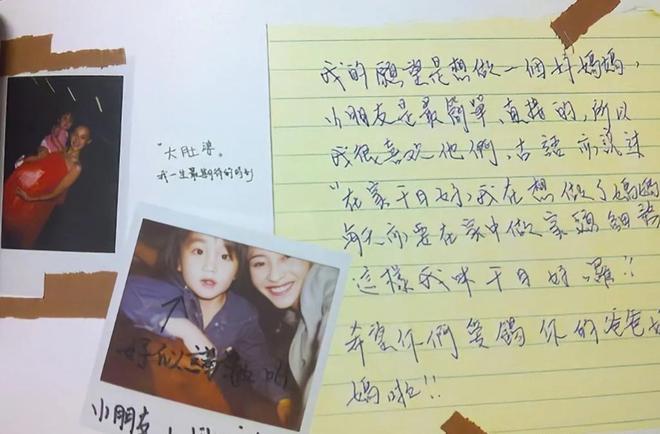 "大肚婆。
我一生最期待的時刻
好似謝
小朋友
我的願望是想做一個好媽媽,
小朋友是最簡單、直接的,所以
我很喜欢他們,古語亦説过
"在家千日好,我在想做了媽媽
每天而要在家中做家頭細務
這樣我咪千日好囉!!
希望你們愛錫你的爸爸媽
媽啦!!